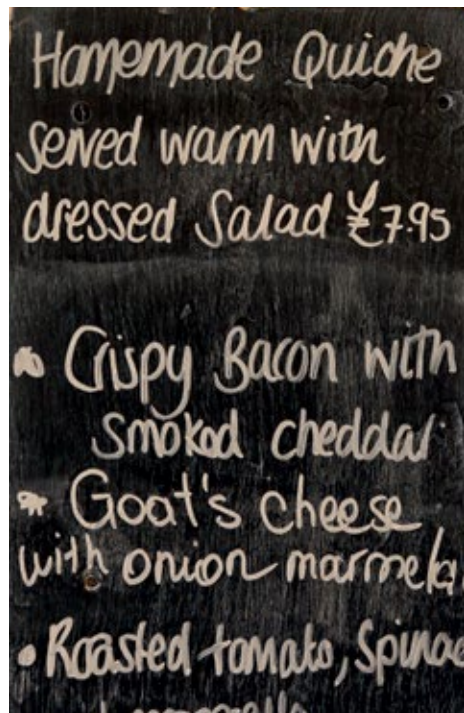 Homemade Quiche
served warm with
dressed Salad £7.95
• Crispy Bacon with
smoked cheddar
* Goat's cheese
with onion marmela
• Roasted tomato, Spinac